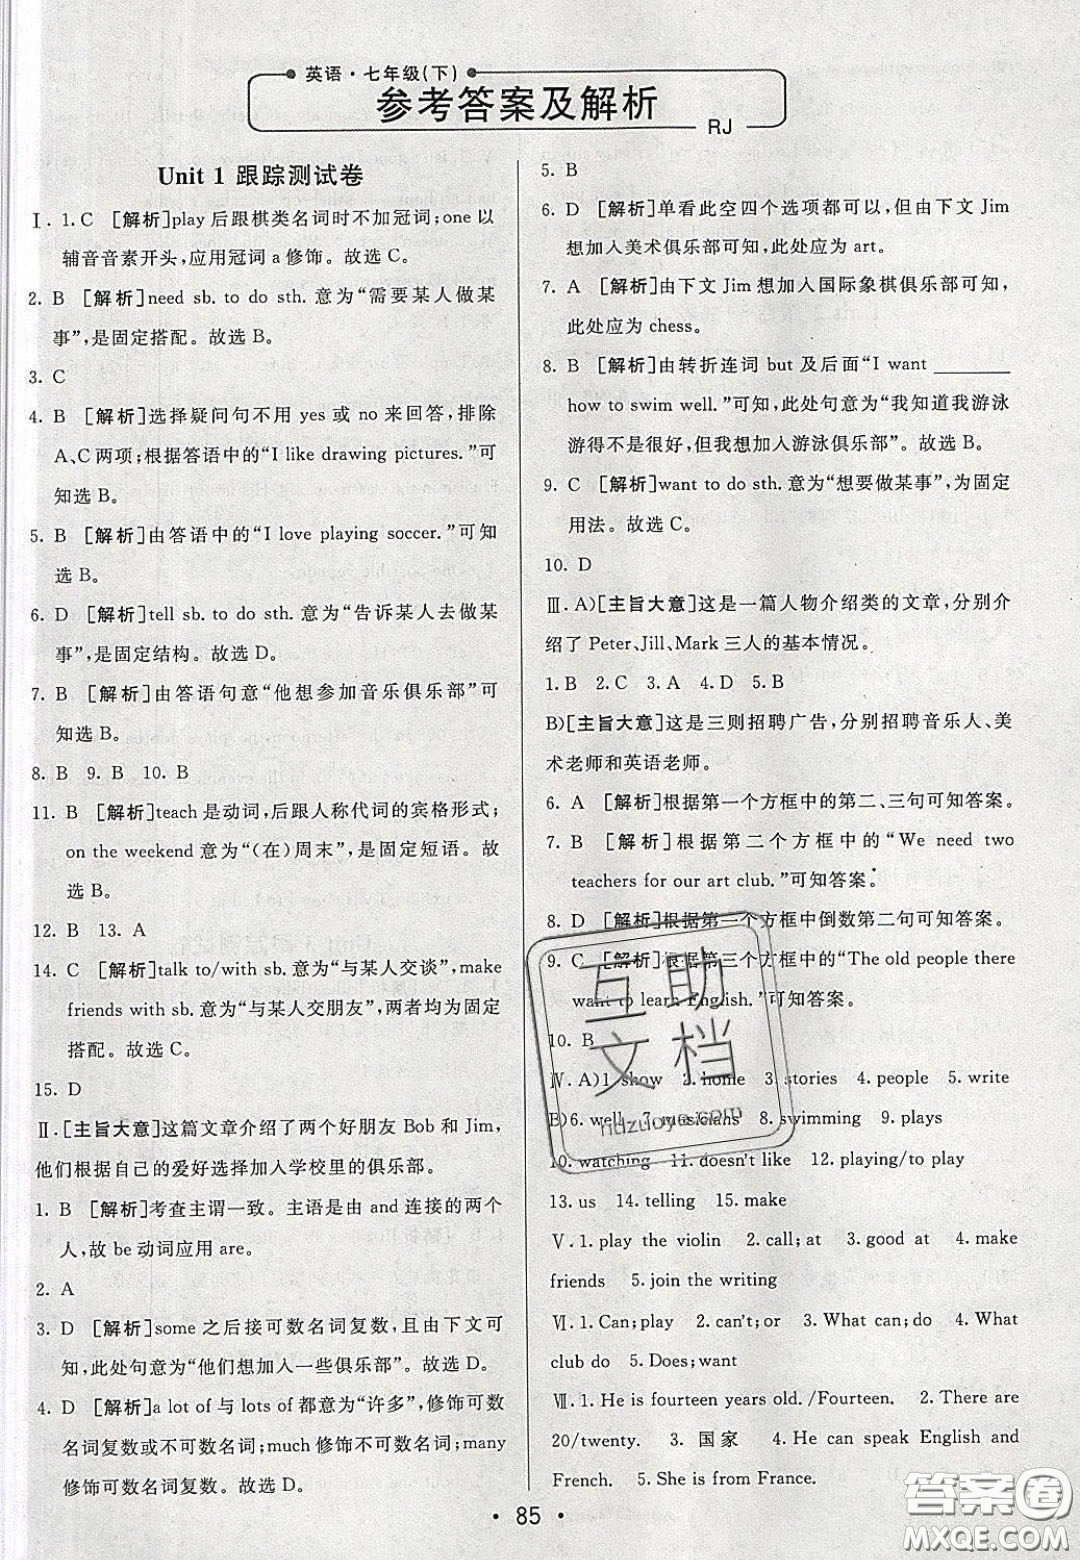 英语·七年级(下)
参考答案及解析
RJ
Unit 1 跟踪测试卷
Ⅰ. 1. C [解析]play 后跟棋类名词时不加冠词;one 以
辅音音素开头,应用冠词 a 修饰。故选 C。
2. B [解析]need sb. to do sth. 意为“需要某人做某
事”,是固定搭配。故选 B。
3. C
4. B [解析]选择疑问句不用 yes 或 no 来回答,排除
A、C 两项;根据答语中的“I like drawing pictures.”可
知选 B。
5. B [解析]由答语中的“I love playing soccer.”可知
选 B。
6. D [解析]tell sb. to do sth. 意为“告诉某人去做某
事”,是固定结构。故选 D。
7. B [解析]由答语句意“他想参加音乐俱乐部”可
知选 B。
8. B 9. B 10. B
11. B [解析]teach 是动词,后跟人称代词的宾格形式;
on the weekend 意为“(在)周末”,是固定短语。故
选 B。
12. B 13. A
14. C [解析]talk to/with sb. 意为“与某人交谈”,make
friends with sb. 意为“与某人交朋友”,两者均为固定
搭配。故选 C。
15. D
Ⅱ. [主旨大意]这篇文章介绍了两个好朋友 Bob 和 Jim,
他们根据自己的爱好选择加入学校里的俱乐部。
1. B [解析]考查主谓一致。主语是由 and 连接的两个
人,故 be 动词应用 are。
2. A
3. D [解析]some 之后接可数名词复数,且由下文可
知,此处句意为“他们想加入一些俱乐部”。故选 D。
4. D [解析]a lot of 与 lots of 都意为“许多”,修饰可数
名词复数或不可数名词;much 修饰不可数名词;many
修饰可数名词复数。故选 D。
5. B
6. D [解析]单看此空四个选项都可以,但由下文 Jim
想加入美术俱乐部可知,此处应为 art。
7. A [解析]由下文 Jim 想加入国际象棋俱乐部可知,
此处应为 chess。
8. B [解析]由转折连词 but 及后面“I want ________
how to swim well.”可知,此处句意为“我知道我游泳
游得不是很好,但我想加入游泳俱乐部”。故选 B。
9. C [解析]want to do sth. 意为“想要做某事”,为固定
用法。故选 C。
10. D
Ⅲ. A)[主旨大意]这是一篇人物介绍类的文章,分别介
绍了 Peter、Jill、Mark 三人的基本情况。
1. B 2. C 3. A 4. D 5. B
B)[主旨大意]这是三则招聘广告,分别招聘音乐人、美
术老师和英语老师。
6. A [解析]根据第一个方框中的第二、三句可知答案。
7. B [解析]根据第二个方框中的“We need two
teachers for our art club.”可知答案。
8. D [解析]根据第一个方框中倒数第二句可知答案。
9. C [解析]根据第三个方框中的“The old people there
want to learn English.”可知答案。
10. B
Ⅳ. A)1. show 2. home 3. stories 4. players 5. write
B)6. well 7. musicians 8. swimming 9. plays
10. watching 11. doesn't like 12. playing/to play
13. us 14. telling 15. make
Ⅴ. 1. play the violin 2. call; at 3. good at 4. make
friends 5. join the writing
Ⅵ. 1. Can; play 2. can't; or 3. What can 4. What
club do 5. Does; want
Ⅶ. 1. He is fourteen years old. /Fourteen. 2. There are
20/twenty. 3. 国家 4. He can speak English and
French. 5. She is from France.
互助
文档
hdzuoye.com
• 85 •
答案圈
MXQE.COM